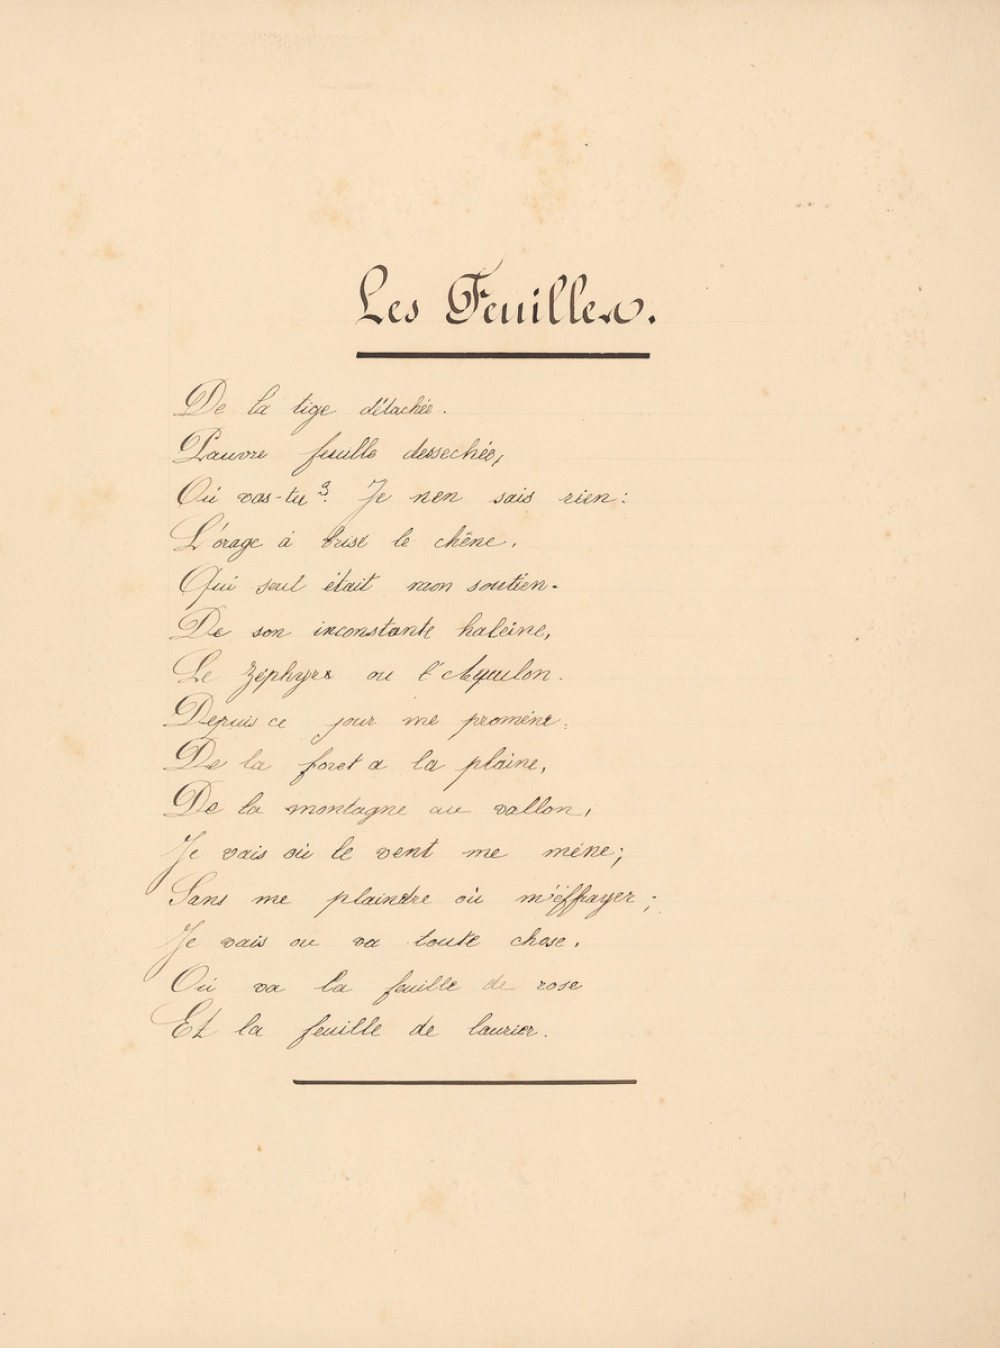 Les Feuilles.
De la tige détachée.
Pauvre feuille dessechée,
Où vas-tu? Je nen sais rien:
L'orage à brisé le chêne.
Qui seul était mon soutien.
De son inconstante haleine,
Le Zéphyre ou l'Aquilon.
Depuis ce jour me promène.
De la foret a la plaine,
De la montagne au vallon,
Je vais où le vent me méne;
Sans me plaindre où m'éffrayer;
Je vais ou va toute chose.
Où va la feuille de rose
Et la feuille de laurier.